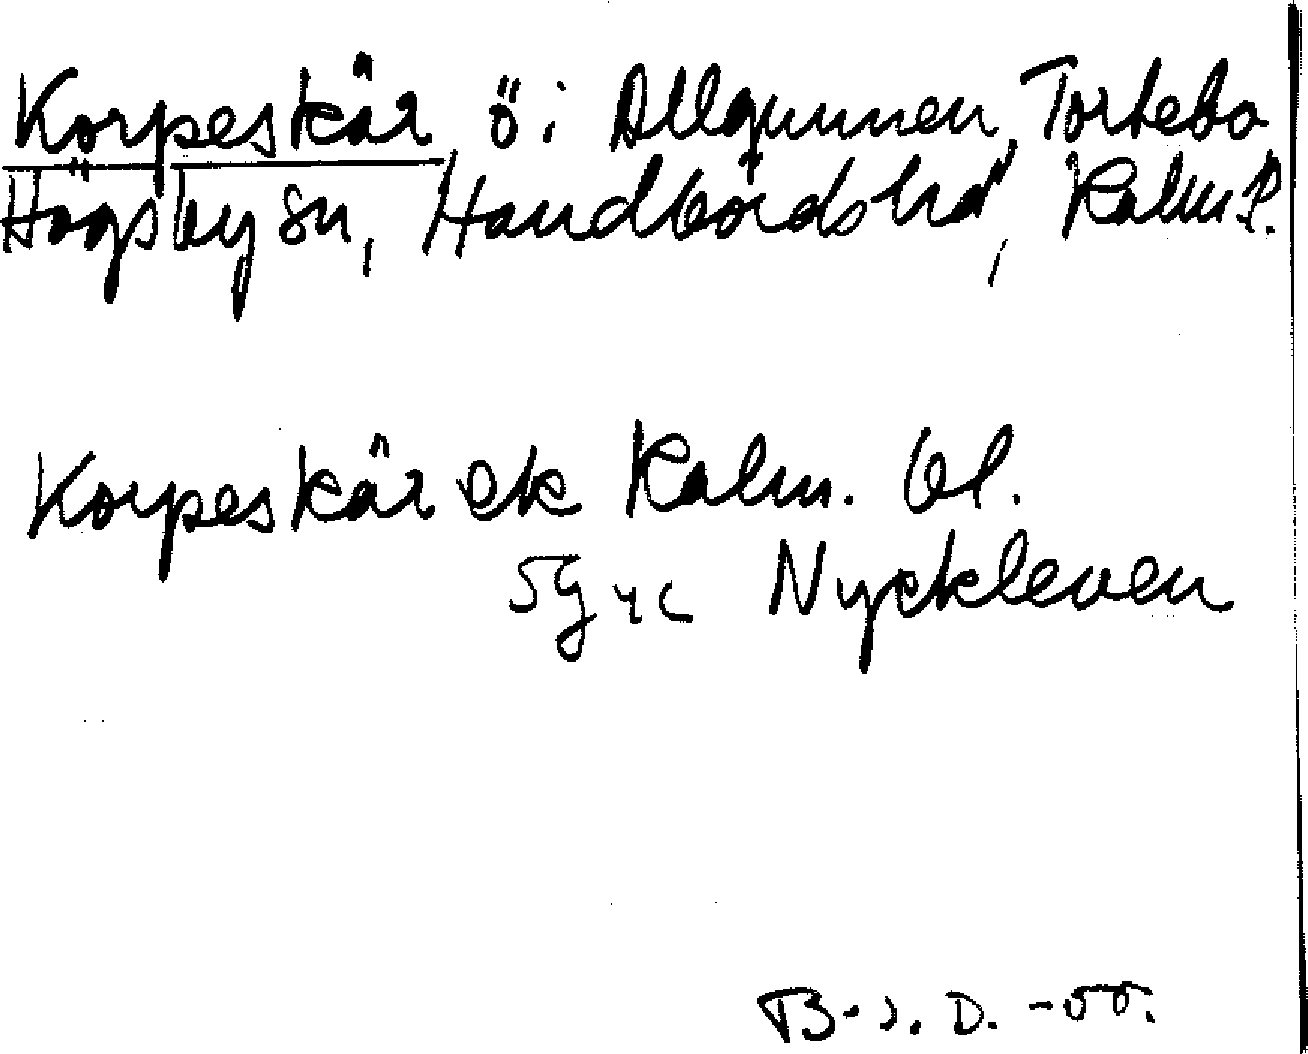 Korpeskär ö i Allgunnen, Torlebo
Högsby sn, Handbörds hd, Kalm l.
Korpeskär ek Kalm. bl.
5G4c Nyckleven